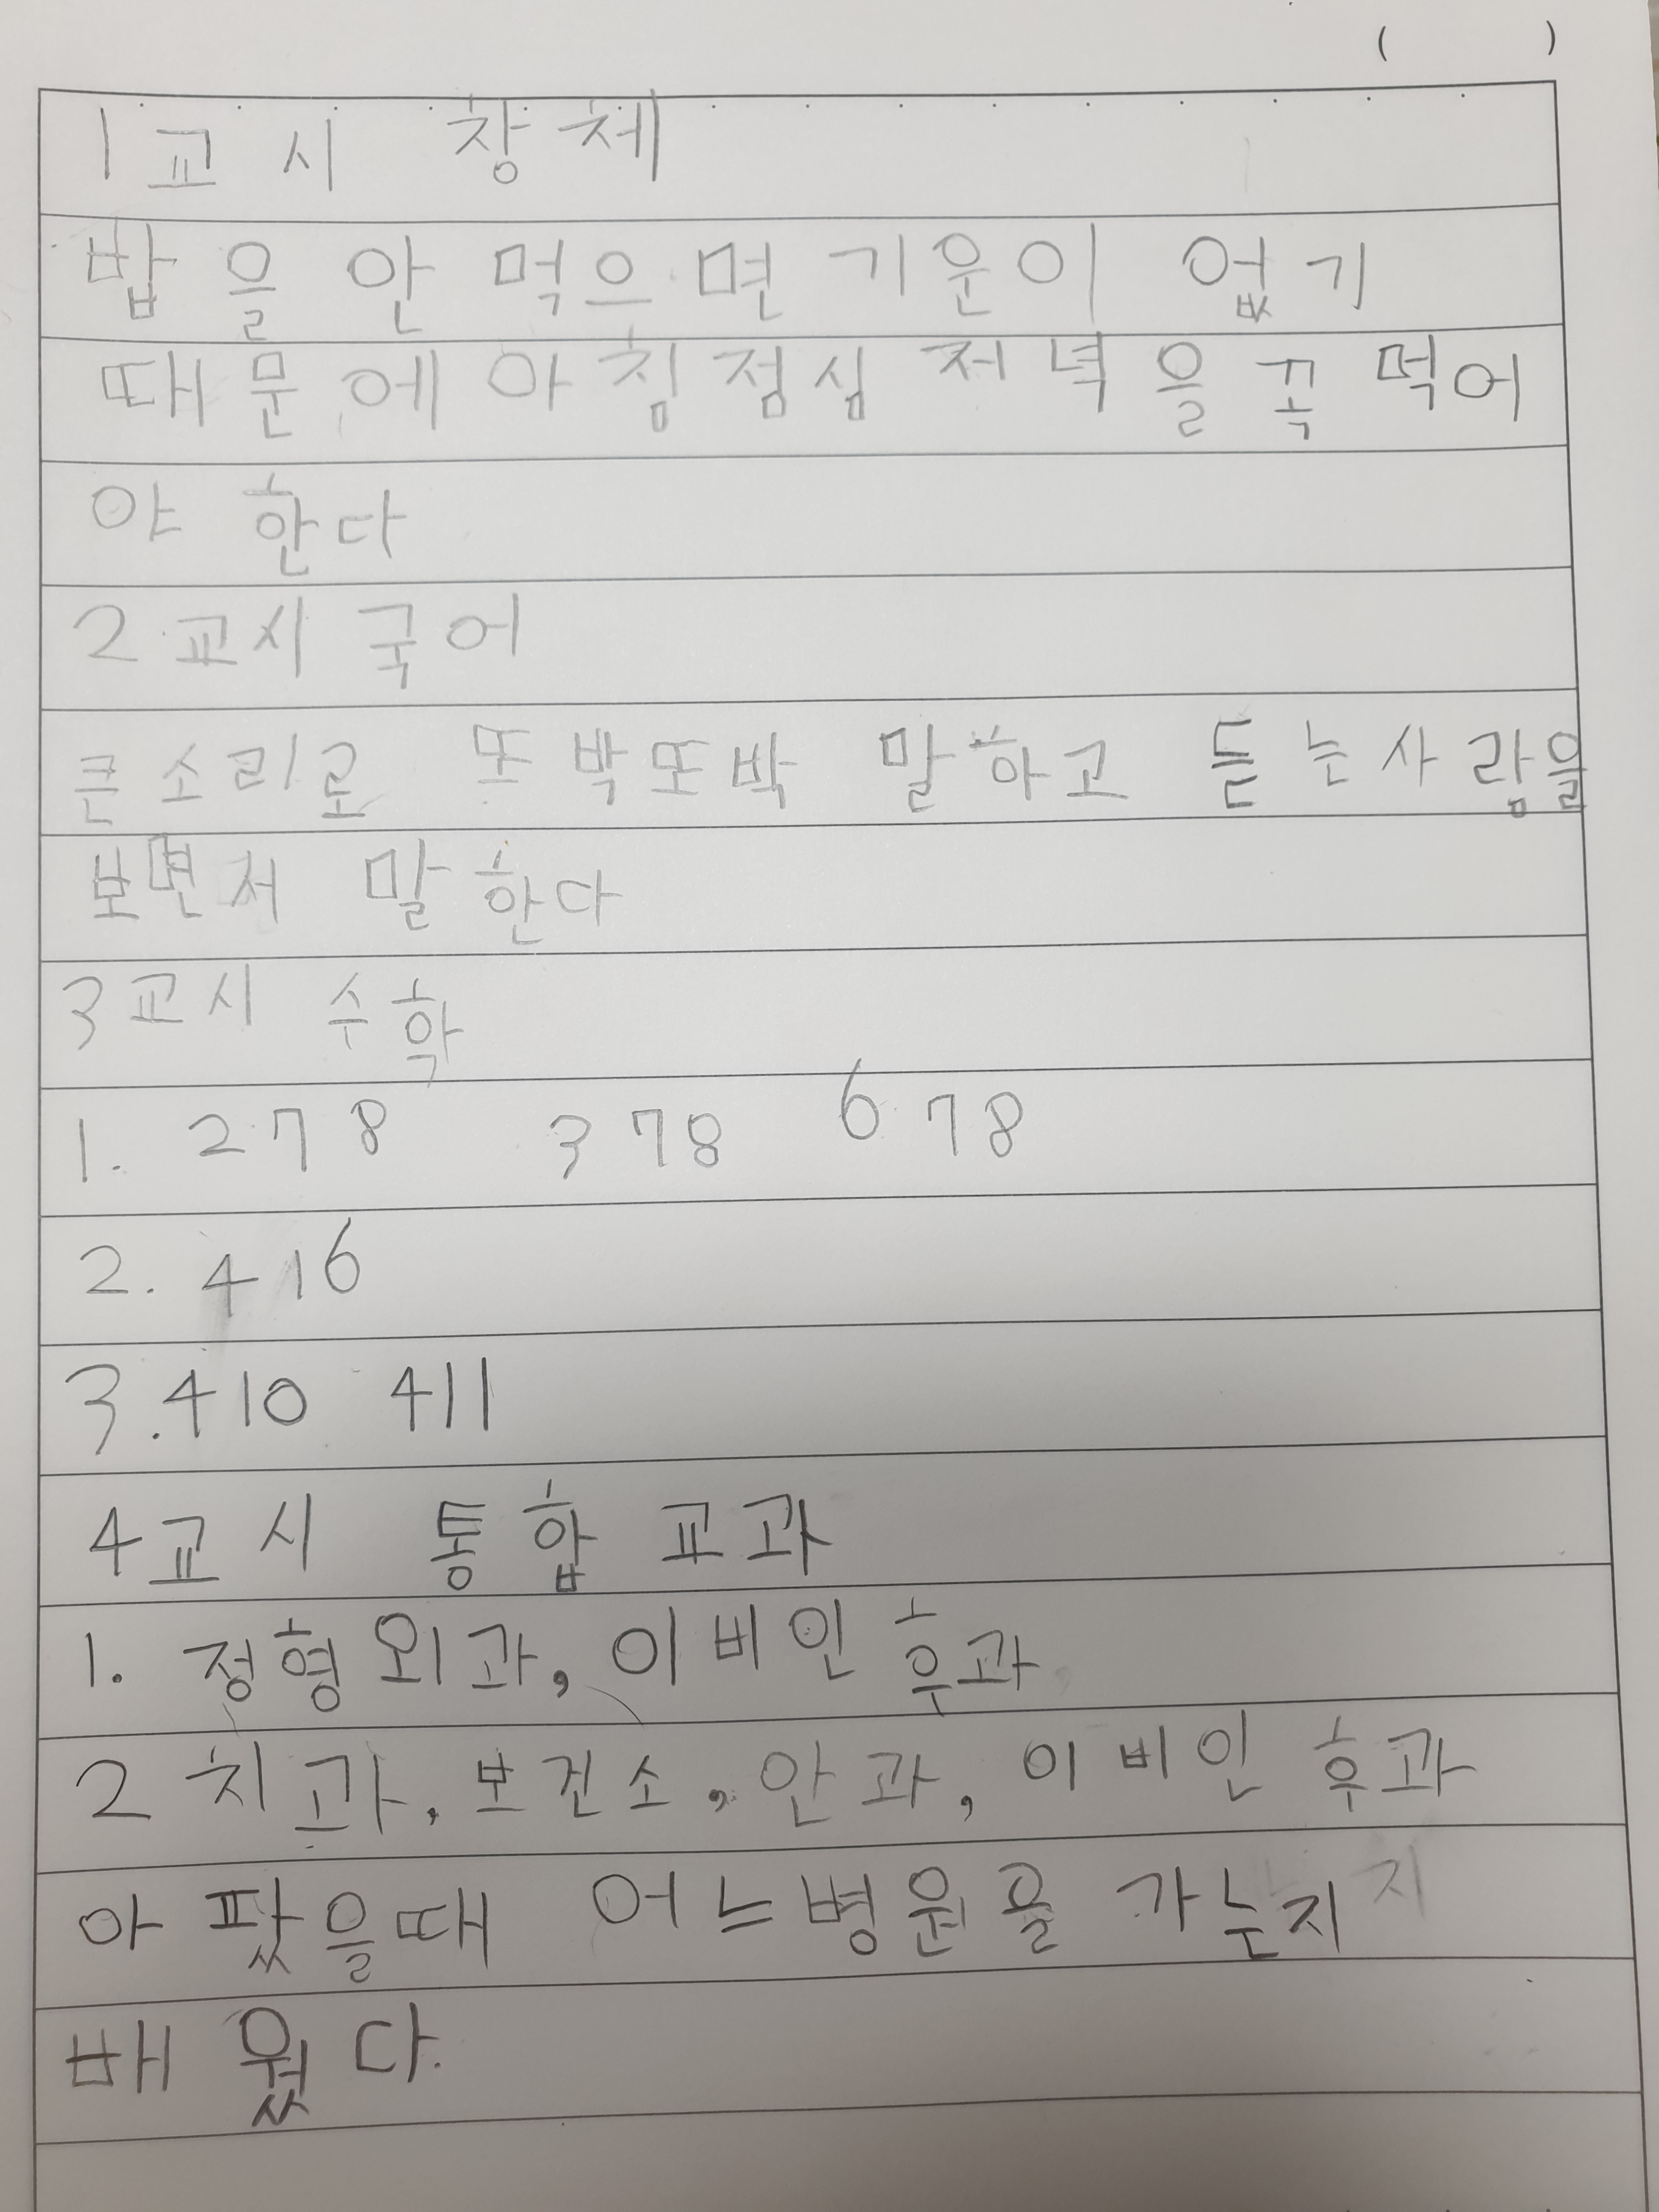 ( )
1교시 창체
밥을 안 먹으면 기운이 없기
때문에 아침점심 저녁을 꼭 먹어
야 한다
2교시 국어
큰소리로 또박또박 말하고 듣는사람을
보면서 말한다
3교시 수학
1. 278 378 678
2. 416
3. 410 411
4교시 통합교과
1. 정형외과, 이비인후과
2 치과, 보건소, 안과, 이비인후과
아팠을때 어느병원을 가는지
배웠다.